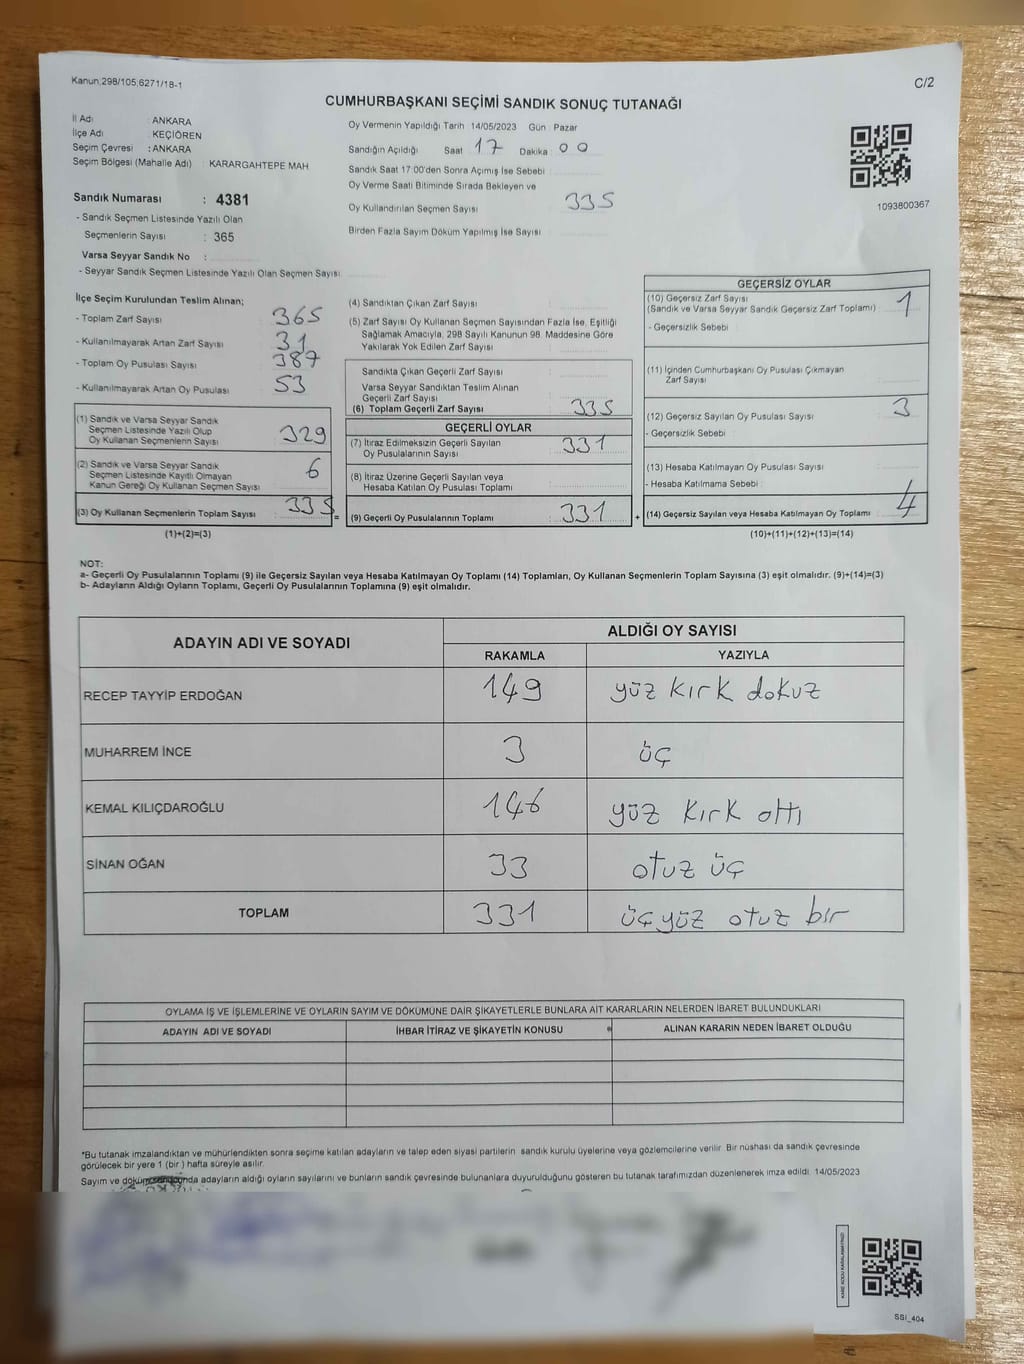 Kanun;298/105;6271/18-1
C/2
CUMHURBAŞKANI SEÇİMİ SANDIK SONUÇ TUTANAĞI
İl Adı : ANKARA
İlçe Adı : KEÇİÖREN
Seçim Çevresi : ANKARA
Seçim Bölgesi (Mahalle Adı) : KARARGAHTEPE MAH
Sandık Numarası : 4381
- Sandık Seçmen Listesinde Yazılı Olan
Seçmenlerin Sayısı : 365
Varsa Seyyar Sandık No :
- Seyyar Sandık Seçmen Listesinde Yazılı Olan Seçmen Sayısı
Oy Vermenin Yapıldığı Tarih 14/05/2023 Gün Pazar
Sandığın Açıldığı Saat 17 Dakika 00
Sandık Saat 17:00'den Sonra Açımış İse Sebebi
Oy Verme Saati Bitiminde Sırada Bekleyen ve
Oy Kullandırılan Seçmen Sayısı 335
Birden Fazla Sayım Döküm Yapılmış İse Sayısı
1093800367
İlçe Seçim Kurulundan Teslim Alınan;
- Toplam Zarf Sayısı : 365
- Kullanılmayarak Artan Zarf Sayısı : 31
- Toplam Oy Pusulası Sayısı : 387
- Kullanılmayarak Artan Oy Pusulası : 53
(1) Sandık ve Varsa Seyyar Sandık
Seçmen Listesinde Yazılı Olup
Oy Kullanan Seçmenlerin Sayısı 329
(2) Sandık ve Varsa Seyyar Sandık
Seçmen Listesinde Kayıtlı Olmayan
Kanun Gereği Oy Kullanan Seçmen Sayısı 6
(3) Oy Kullanan Seçmenlerin Toplam Sayısı 335
=
(1)+(2)=(3)
(4) Sandıktan Çıkan Zarf Sayısı
(5) Zarf Sayısı Oy Kullanan Seçmen Sayısından Fazla İse, Eşitliği
Sağlamak Amacıyla, 298 Sayılı Kanunun 98. Maddesine Göre
Yakılarak Yok Edilen Zarf Sayısı
Sandıkta Çıkan Geçerli Zarf Sayısı
Varsa Seyyar Sandıktan Teslim Alınan
Geçerli Zarf Sayısı
(6) Toplam Geçerli Zarf Sayısı 335
GEÇERLİ OYLAR
(7) İtiraz Edilmeksizin Geçerli Sayılan
Oy Pusulalarının Sayısı 331
(8) İtiraz Üzerine Geçerli Sayılan veya
Hesaba Katılan Oy Pusulası Toplamı
(9) Geçerli Oy Pusulalarının Toplamı 331
+
GEÇERSİZ OYLAR
(10) Geçersiz Zarf Sayısı
(Sandık ve Varsa Seyyar Sandık Geçersiz Zarf Toplamı) 1
- Geçersizlik Sebebi :
(11) İçinden Cumhurbaşkanı Oy Pusulası Çıkmayan
Zarf Sayısı
(12) Geçersiz Sayılan Oy Pusulası Sayısı 3
- Geçersizlik Sebebi :
(13) Hesaba Katılmayan Oy Pusulası Sayısı
- Hesaba Katılmama Sebebi :
(14) Geçersiz Sayılan veya Hesaba Katılmayan Oy Toplamı 4
(10)+(11)+(12)+(13)=(14)
NOT:
a- Geçerli Oy Pusulalarının Toplamı (9) ile Geçersiz Sayılan veya Hesaba Katılmayan Oy Toplamı (14) Toplamları, Oy Kullanan Seçmenlerin Toplam Sayısına (3) eşit olmalıdır. (9)+(14)=(3)
b- Adayların Aldığı Oyların Toplamı, Geçerli Oy Pusulalarının Toplamına (9) eşit olmalıdır.
ADAYIN ADI VE SOYADI
ALDIĞI OY SAYISI
RAKAMLA YAZIYLA
RECEP TAYYİP ERDOĞAN 149 yüz kırk dokuz
MUHARREM İNCE 3 üç
KEMAL KILIÇDAROĞLU 146 yüz kırk altı
SİNAN OĞAN 33 otuz üç
TOPLAM 331 üçyüz otuz bir
OYLAMA İŞ VE İŞLEMLERİNE VE OYLARIN SAYIM VE DÖKÜMÜNE DAİR ŞİKAYETLERLE BUNLARA AİT KARARLARIN NELERDEN İBARET BULUNDUKLARI
ADAYIN ADI VE SOYADI İHBAR İTİRAZ VE ŞİKAYETİN KONUSU ALINAN KARARIN NEDEN İBARET OLDUĞU
*Bu tutanak imzalandıktan ve mühürlendikten sonra seçime katılan adayların ve talep eden siyasi partilerin sandık kurulu üyelerine veya gözlemcilerine verilir. Bir nüshası da sandık çevresinde
görülecek bir yere 1 (bir) hafta süreyle asılır.
Sayım ve dökümü sonunda adayların aldığı oyların sayılarını ve bunların sandık çevresinde bulunanlara duyurulduğunu gösteren bu tutanak tarafımızdan düzenlenerek imza edildi. 14/05/2023
KARE KODU KARALAMAYINIZ!
SSI_404